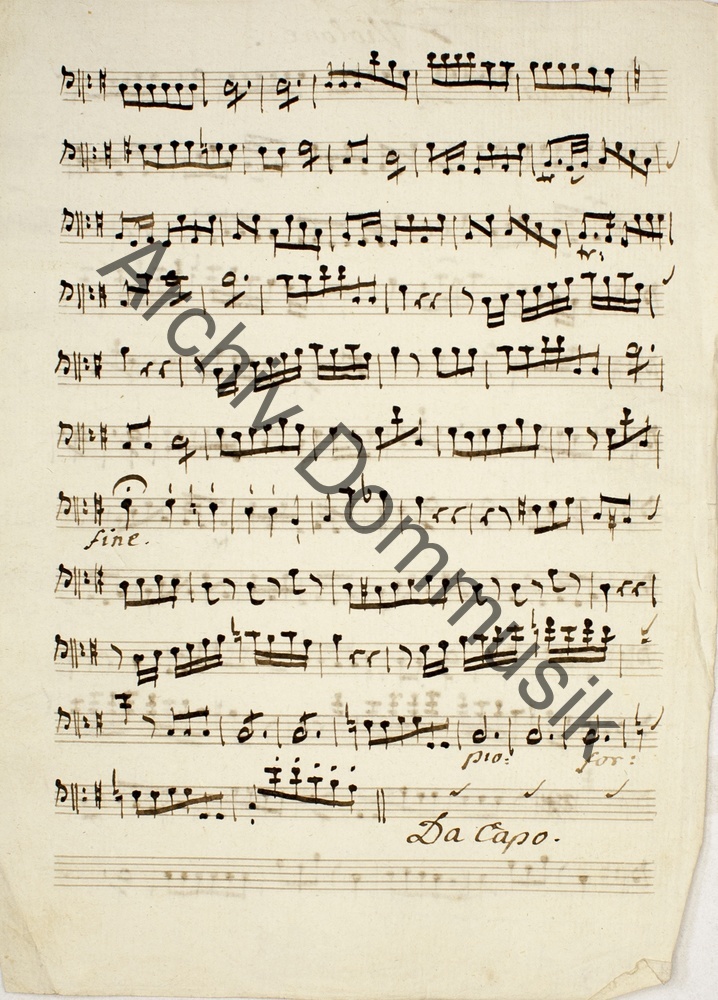 tr:
fine.
pio: for:
Da Capo.
Archiv Dommusik